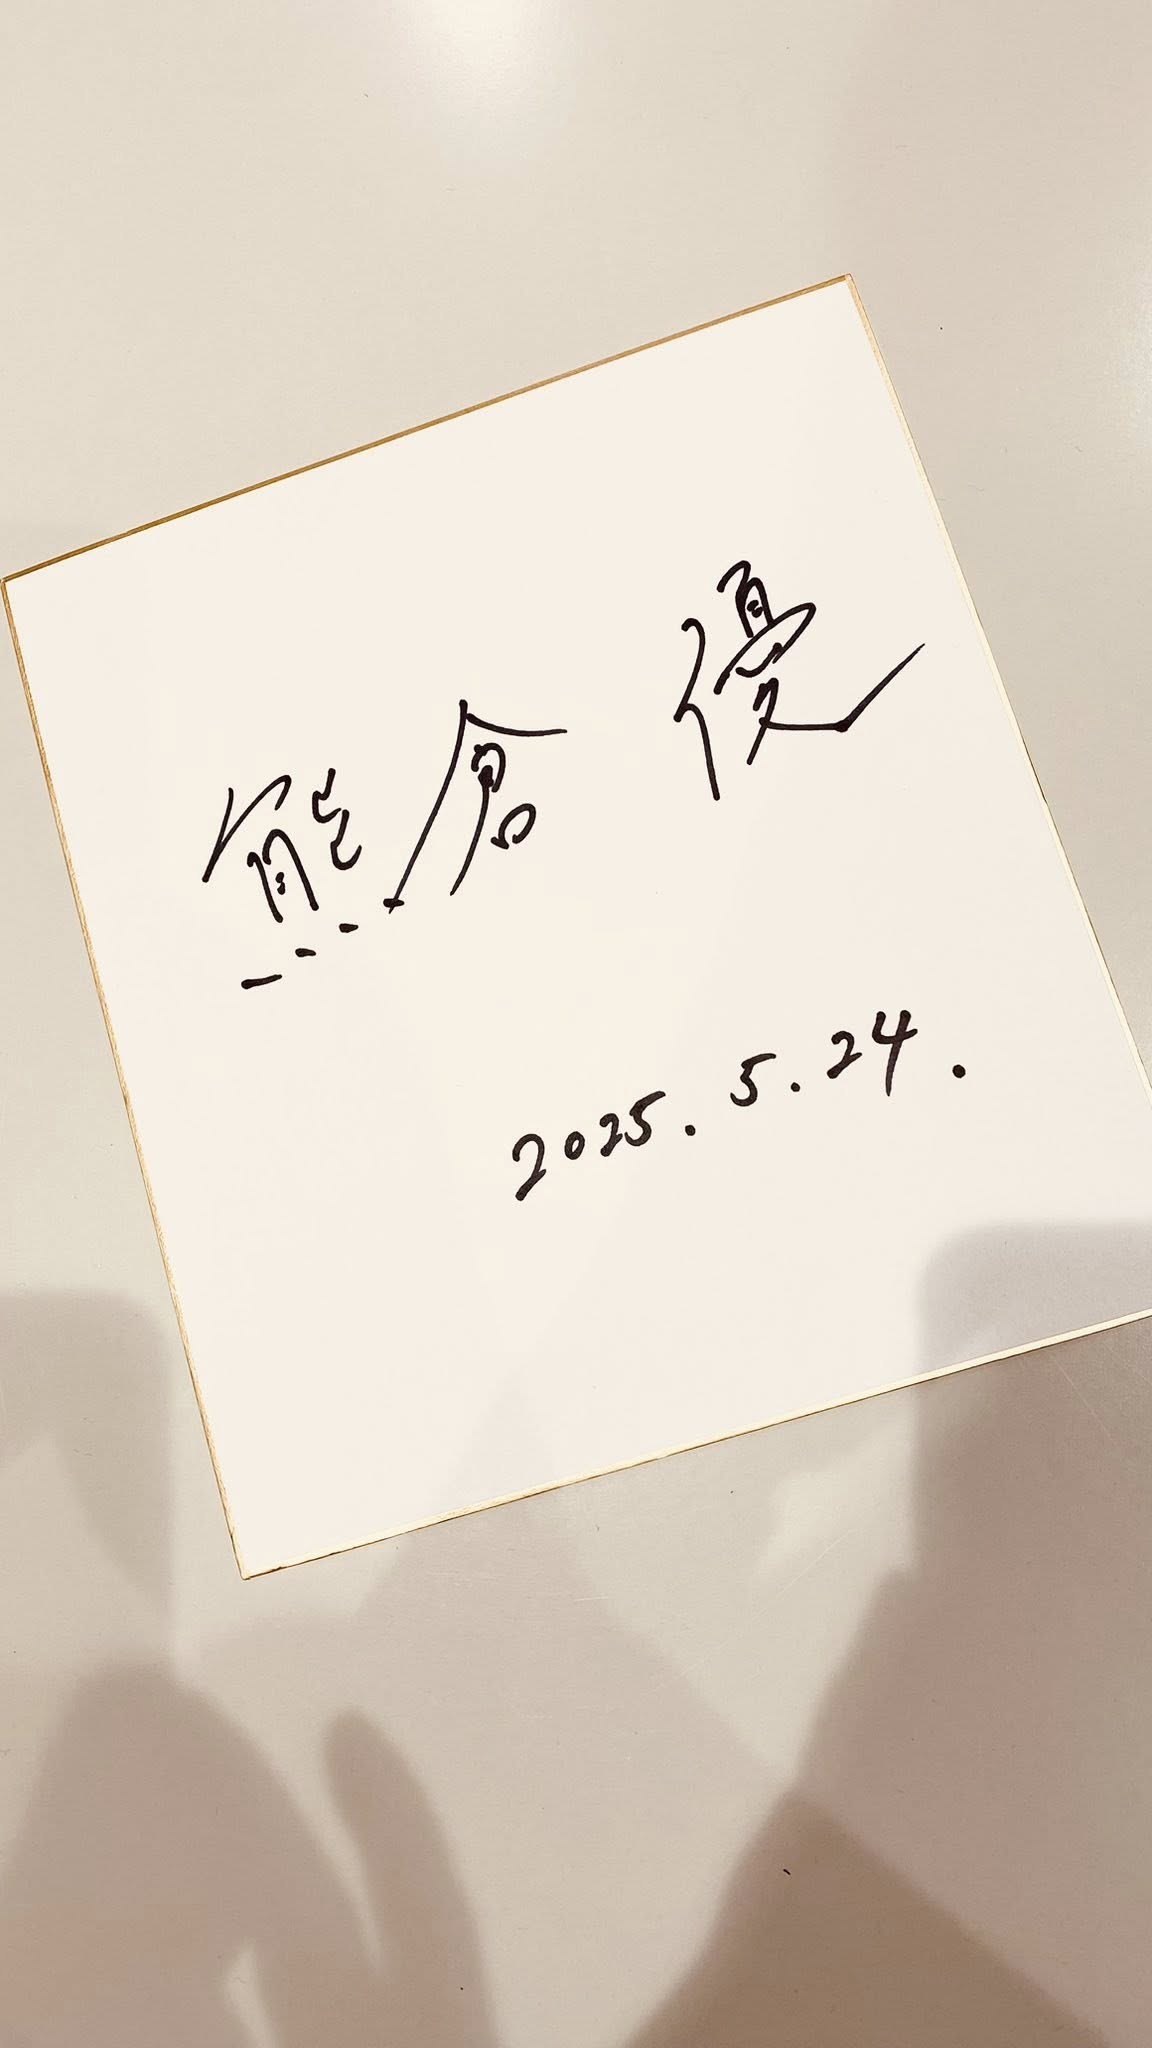 熊倉 優
2025. 5. 24.